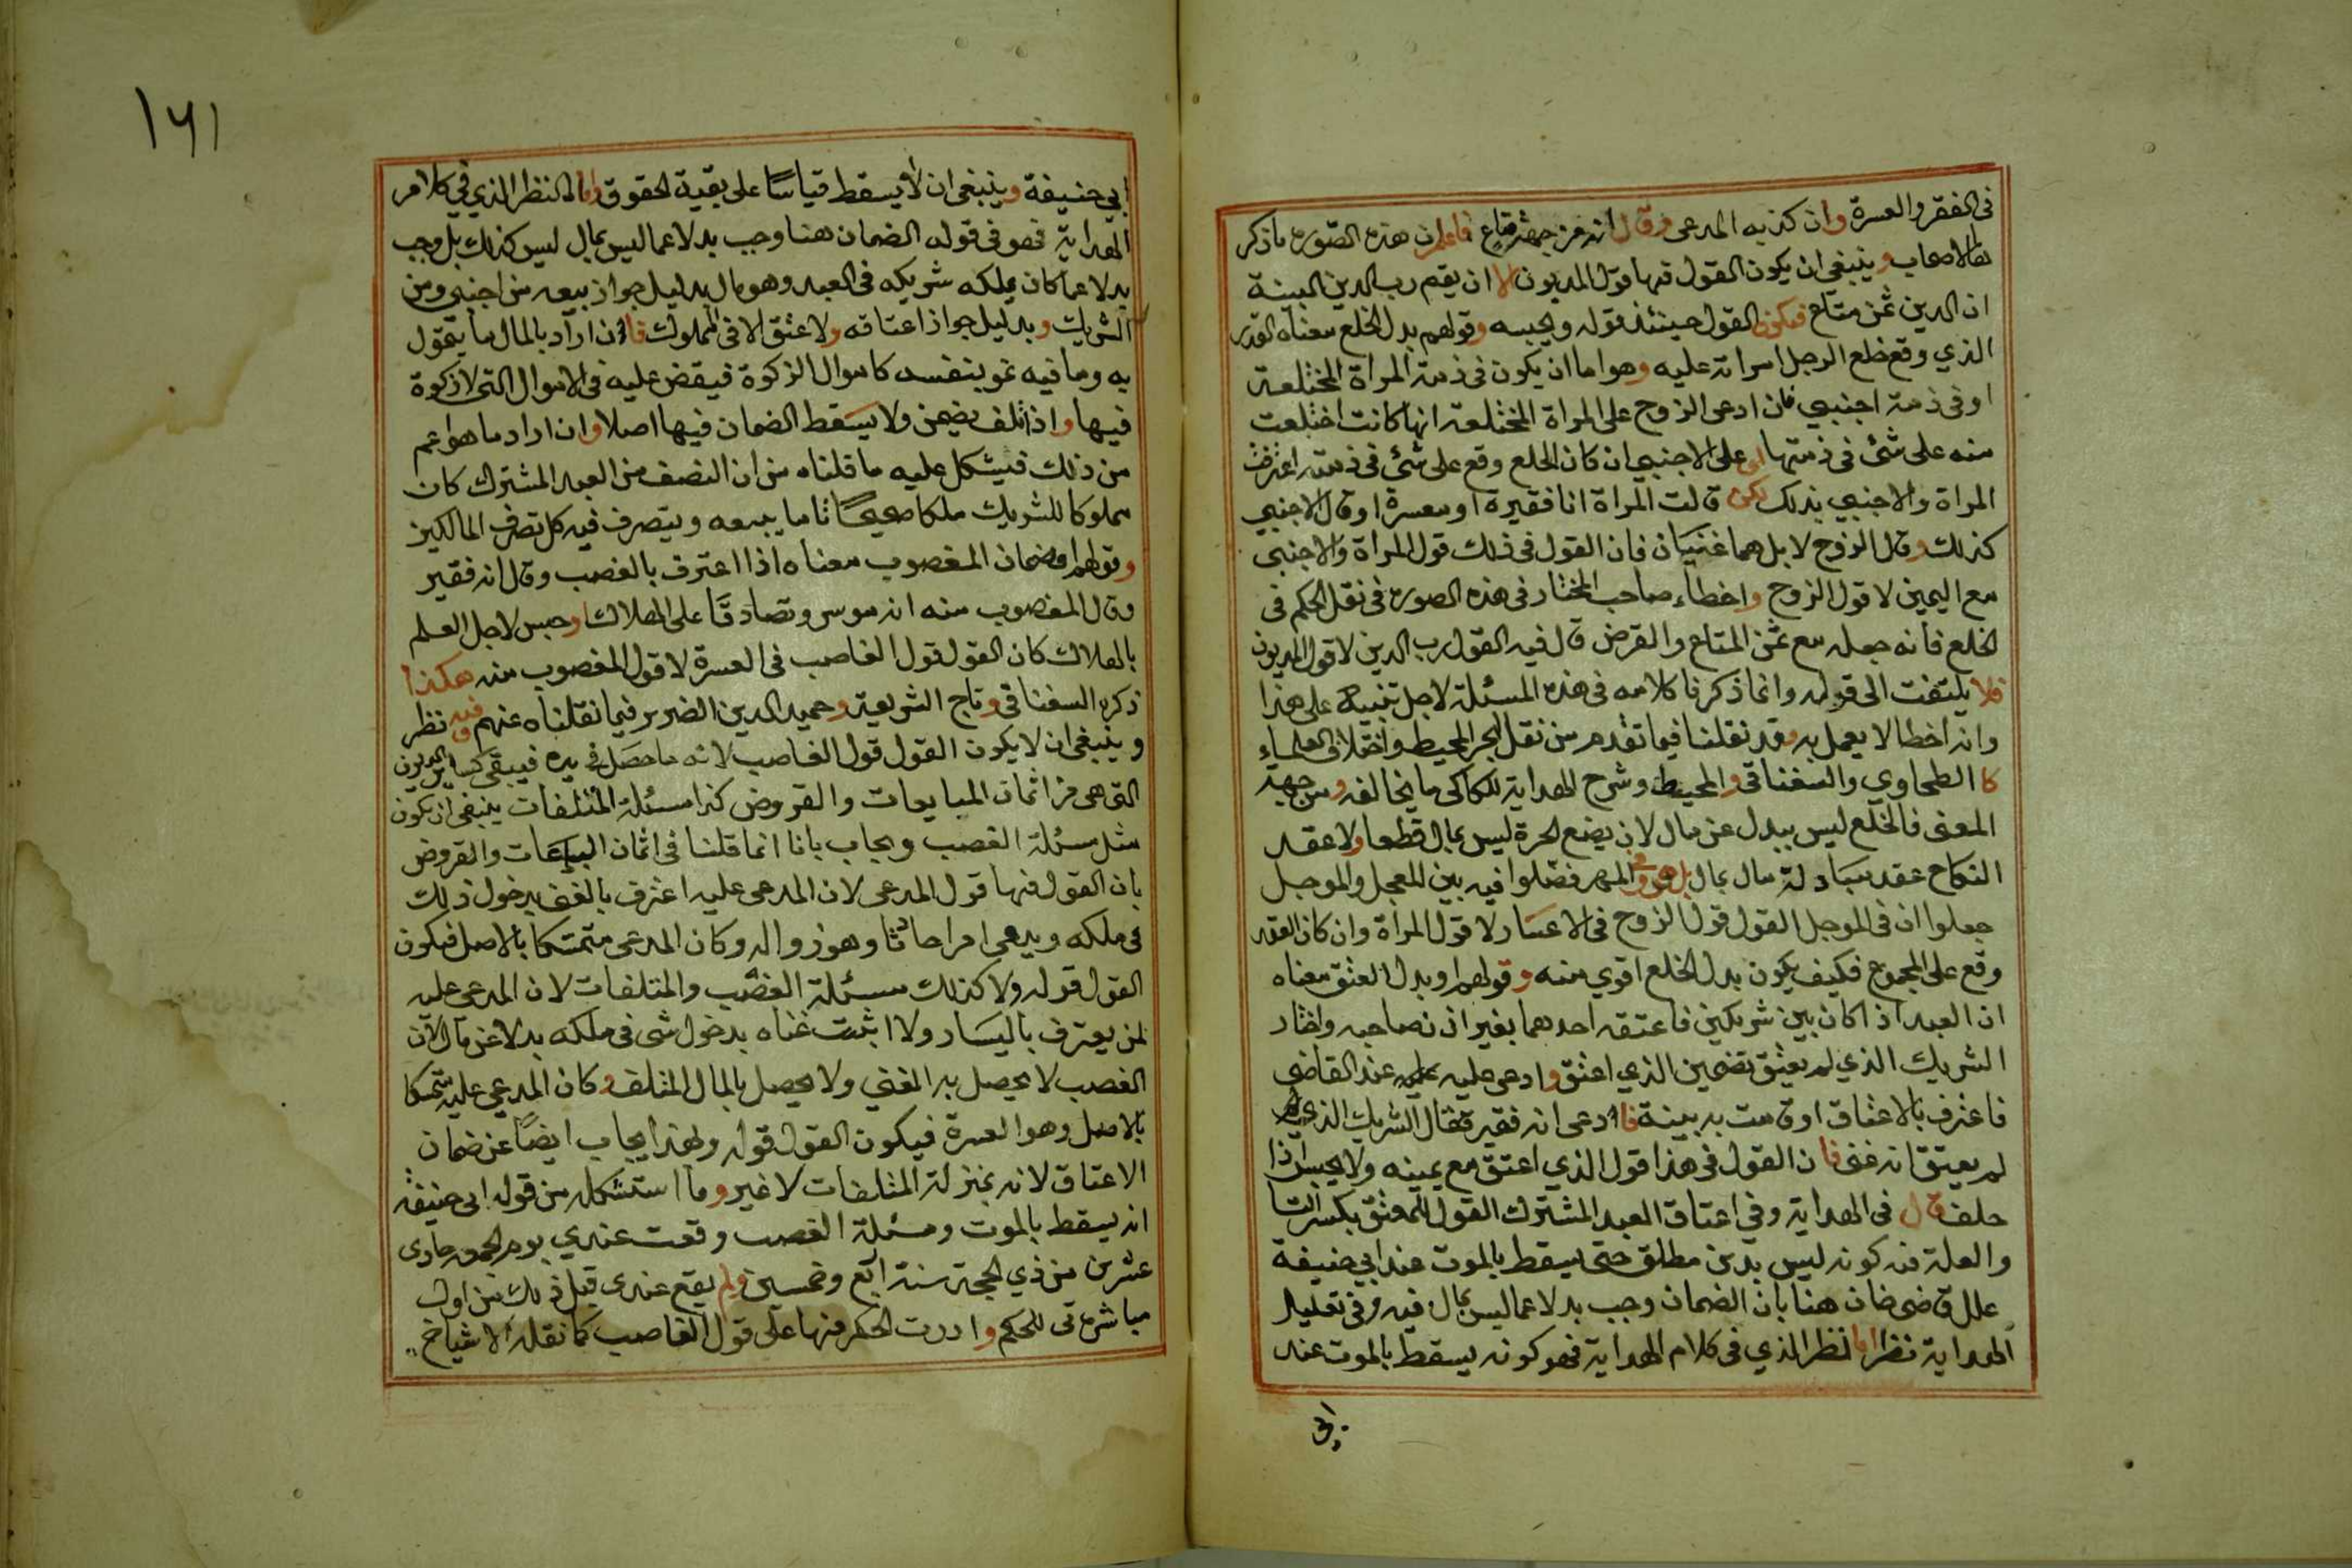 في الفقر والعسرة وان كذبه المدعى وقال انه من جهة متاع فاعلم ان هذه الصورة ما ذكر
الاصحاب وينبغي ان يكون القول فيها قول المديون الا ان يقيم رب الدين البينة
ان الدين ثمن متاع فيكون القول حينئذ قوله ويحبسه وقولهم بدل الخلع معناه القدر
الذي وقع خلع الرجل امراته عليه وهو اما ان يكون في ذمة المراة المختلعة
او في ذمة اجنبي فان ادعى الزوج على المراة المختلعة انها كانت اختلعت
منه على شئ في ذمتها او على الاجنبي ان كان الخلع وقع على شئ في ذمته اعترفت
المراة والاجنبي بذلك لكن قالت المراة انا فقيرة او معسرة او قال الاجنبي
كذلك وقال الزوج لا بل هما غنيان فان القول في ذلك قول المراة والاجنبي
مع اليمين لا قول الزوج واخطاء صاحب المختار في هذه الصورة في نقل الحكم في
الخلع فانه جعله مع ثمن المتاع والقرض قال فيه القول رب الدين لا قول المديون
فلا يلتفت الى قوله وانما ذكرنا كلامه في هذه المسئلة لاجل تنبيه على هذا
وانه اخطا لا يعمل به وقد نقلنا فيما تقدم من نقل البحر المحيط واختلاف العلماء
كا الطحاوي والسغناقي والمحيط وشرح الهداية للكاكى ما يخالفه ومن جهة
المعنى فالخلع ليس ببدل عن مال لان بضع الحرة ليس بمال قطعا ولا عقد
النكاح عقد مبادلة مال بمال بل هو وفي المهر فصلوا فيه بين المعجل والموجل
جعلوا ان في الموجل القول قول الزوج في الاعسار لا قول المراة وان كان العقد
وقع على المجموع فكيف يكون بدل الخلع اقوي منه وقولهم او بدل العتق معناه
ان العبد اذا كان بين شريكين فاعتقه احدهما بغير اذن صاحبه واختار
الشريك الذي لم يعتق تضمين الذي اعتق وادعى عليه عند القاضي
فاعترف بالاعتاق او قامت به بينة فادعى انه فقير فقال الشريك الذي لم
لم يعتق انه غنى فان القول في هذا قول الذي اعتق مع يمينه ولا يحبس اذا
حلف قال في الهداية وفي اعتاق العبد المشترك القول للمعتق بكسر التا
والعلة فيه كونه ليس بدين مطلق حتى يسقط بالموت عند ابي حنيفة
علل قاضي خان هنا بان الضمان وجب بدلا عما ليس بمال فيه وفي تعليل
الهداية نظر اما النظر الذي في كلام الهداية فهو كونه يسقط بالموت عند
ابي
١٦١
ابي حنيفة وينبغي ان لا يسقط قياسا على بقية الحقوق واما النظر الذي في كلام
الهداية فهو في قوله الضمان هنا وجب بدلا عما ليس بمال ليس كذلك بل وجب
بدلا عما كان يملكه شريكه في العبد وهو مال بدليل جواز بيعه من اجنبي ومن
الشريك وبدليل جواز اعتاقه ولا عتق الا في المملوك فان اراد بالمال ما يتمول
به وما فيه نمو بنفسه كاموال الزكوة فيقض عليه في الاموال التى لا زكوة
فيها واذا تلف يضمن ولا يسقط الضمان فيها اصلا وان اراد ما هو اعم
من ذلك فيشكل عليه ما قلناه من ان النصف من العبد المشترك كان
مملوكا للشريك ملكا صحيحا تاما يبيعه ويتصرف فيه كل تصرف المالكين
وقولهم او ضمان المغصوب معناه اذا اعترف بالغصب وقال انه فقير
وقال المغصوب منه انه موسر وتصادقا على الهلاك او حبس لاجل العلم
بالهلاك كان القول قول الغاصب في العسرة لا قول المغصوب منه هكذا
ذكره السغناقي وتاج الشريعة وحميد الدين الضرير فيما نقلناه عنهم وفيه نظر
وينبغي ان لا يكون القول قول الغاصب لانه ما حصل في يده فيبقى كساير الديون
التى هي من اثمان المبايعات والقروض كذا مسئلة المتلفات ينبغي ان يكون
مثل مسئلة الغصب ويجاب بانا انما قلنا في اثمان البياعات والقروض
بان القول فيها قول المدعى لان المدعى عليه اعترف بالغنى بدخول ذلك
في ملكه ويدعي امرا حادثا وهو زواله وكان المدعى متمسكا بالاصل فيكون
القول قوله ولا كذلك مسئلة الغصب والمتلفات لان المدعى عليه
لمن يعترف باليسار ولا اثبت غناه بدخول شى في ملكه بدلا عن مال لان
الغصب لا يحصل به المغني ولا يحصل بالمال المتلف وكان المدعي عليه متمسكا
بالاصل وهو العسرة فيكون القول قوله ولهذا يجاب ايضا عن ضمان
الاعتاق لانه بمنزلة المتلفات لا غير وما استشكله من قوله ابى حنيفة
انه يسقط بالموت ومسئلة الغصب وقعت عندي يوم الجمعة حادى
عشرين من ذي الحجة سنة اربع وخمسين ولم يقع عندي قبل ذلك من اول
مباشرتى للحكم وادرت الحكم فيها على قول الغاصب كما نقله الاشياخ